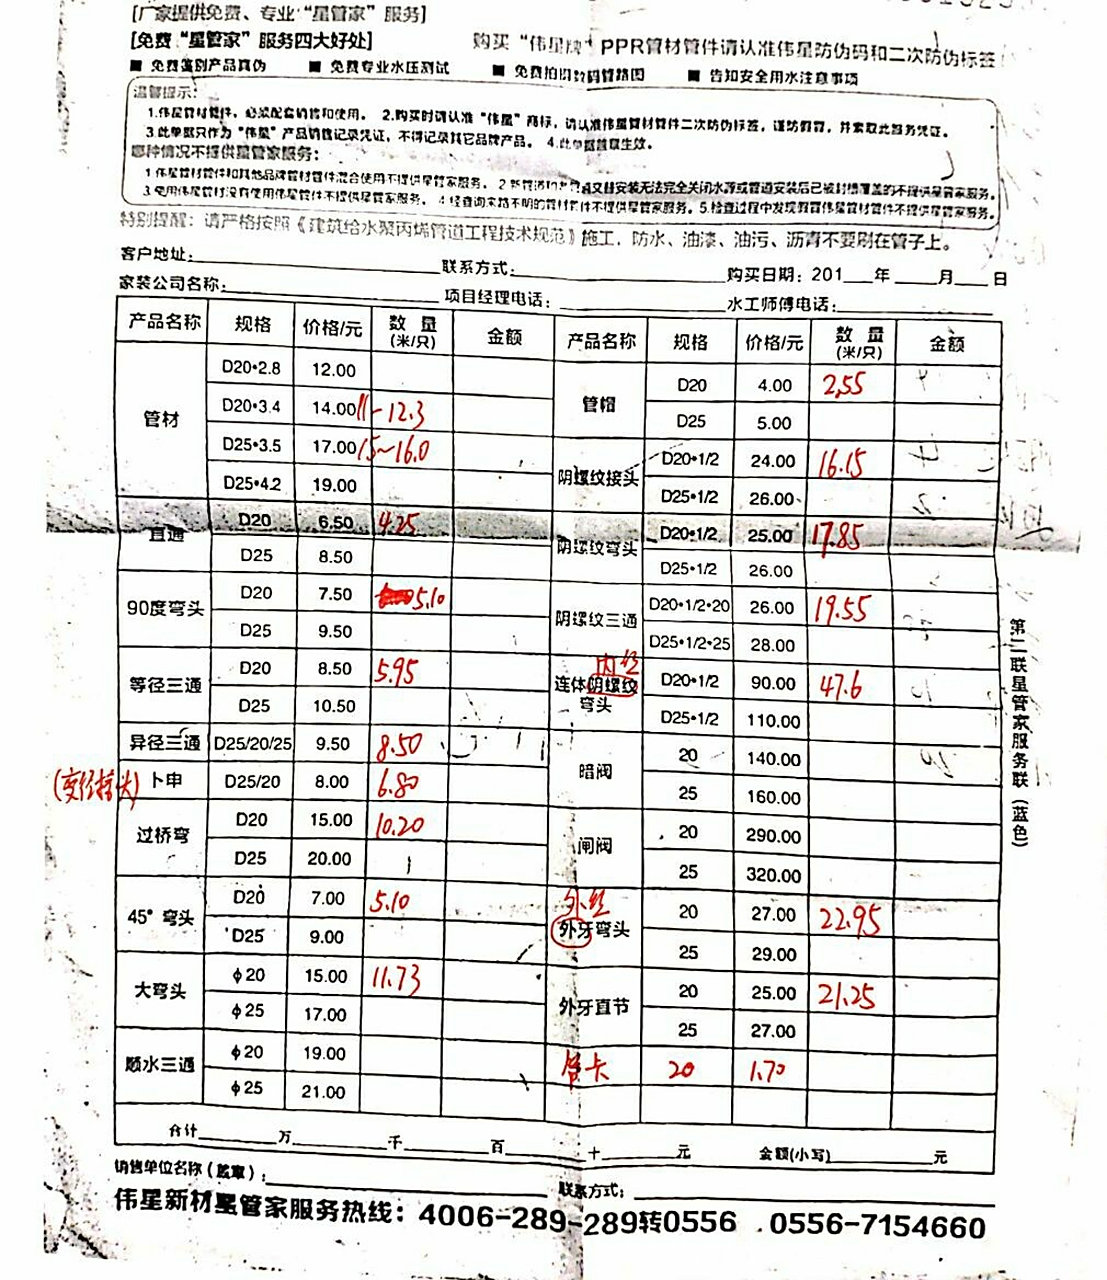 [厂家提供免费、专业“星管家”服务]
[免费“星管家”服务四大好处] 购买“伟星牌”PPR管材管件请认准伟星防伪码和二次防伪标签
■ 免费鉴别产品真伪 ■ 免费专业水压测试 ■ 免费拍照数码管路图 ■ 告知安全用水注意事项
温馨提示:
1.伟星管材管件,必须配套销售和使用。 2.购买时请认准“伟星”商标,请认准伟星管材管件二次防伪标签,谨防假冒,并索取此服务凭证。
3.此单据只作为“伟星”产品销售记录凭证,不得记录其它品牌产品。 4.此单据盖章生效。
哪种情况不提供星管家服务:
1.伟星管材管件和其他品牌管材管件混合使用不提供星管家服务。 2.新管道和 安装无法完全关闭水源或管道安装后已被封槽覆盖的不提供星管家服务。
3.使用伟星管材没有使用伟星管件不提供星管家服务。 4.经查询来路不明的管材管件不提供星管家服务。5.检查过程中发现假冒伟星管材管件不提供星管家服务。
特别提醒:请严格按照《建筑给水聚丙烯管道工程技术规范》施工,防水、油漆、油污、沥青不要刷在管子上。
客户地址: 联系方式: 购买日期:201 年 月 日
家装公司名称: 项目经理电话: 水工师傅电话:
产品名称 规格 价格/元 数量(米/只) 金额 产品名称 规格 价格/元 数量(米/只) 金额
管材 D20•2.8 12.00 管帽 D20 4.00 2.55
D20•3.4 14.00 11-12.3 D25 5.00
D25•3.5 17.00 15~16.0 阴螺纹接头 D20•1/2 24.00 16.15
D25•4.2 19.00 D25•1/2 26.00
直通 D20 6.50 4.25 阴螺纹弯头 D20•1/2 25.00 17.85
D25 8.50 D25•1/2 26.00
90度弯头 D20 7.50 5.10 阴螺纹三通 D20•1/2•20 26.00 19.55
D25 9.50 D25•1/2•25 28.00
内丝
等径三通 D20 8.50 5.95 连体阴螺纹弯头 D20•1/2 90.00 47.6
D25 10.50 D25•1/2 110.00
异径三通 D25/20/25 9.50 8.50 暗阀 20 140.00
(变径接头) 卜申 D25/20 8.00 6.80 25 160.00
过桥弯 D20 15.00 10.20 闸阀 20 290.00
D25 20.00 25 320.00
外丝
45°弯头 D20 7.00 5.10 外牙弯头 20 27.00 22.95
D25 9.00 25 29.00
大弯头 φ20 15.00 11.73 外牙直节 20 25.00 21.25
φ25 17.00 25 27.00
顺水三通 φ20 19.00 管卡 20 1.70
φ25 21.00
合计 万 千 百 十 元 金额(小写) 元
销售单位名称(盖章): 联系方式:
伟星新材星管家服务热线:4006-289-289转0556 0556-7154660
第二联星管家服务联(蓝色)